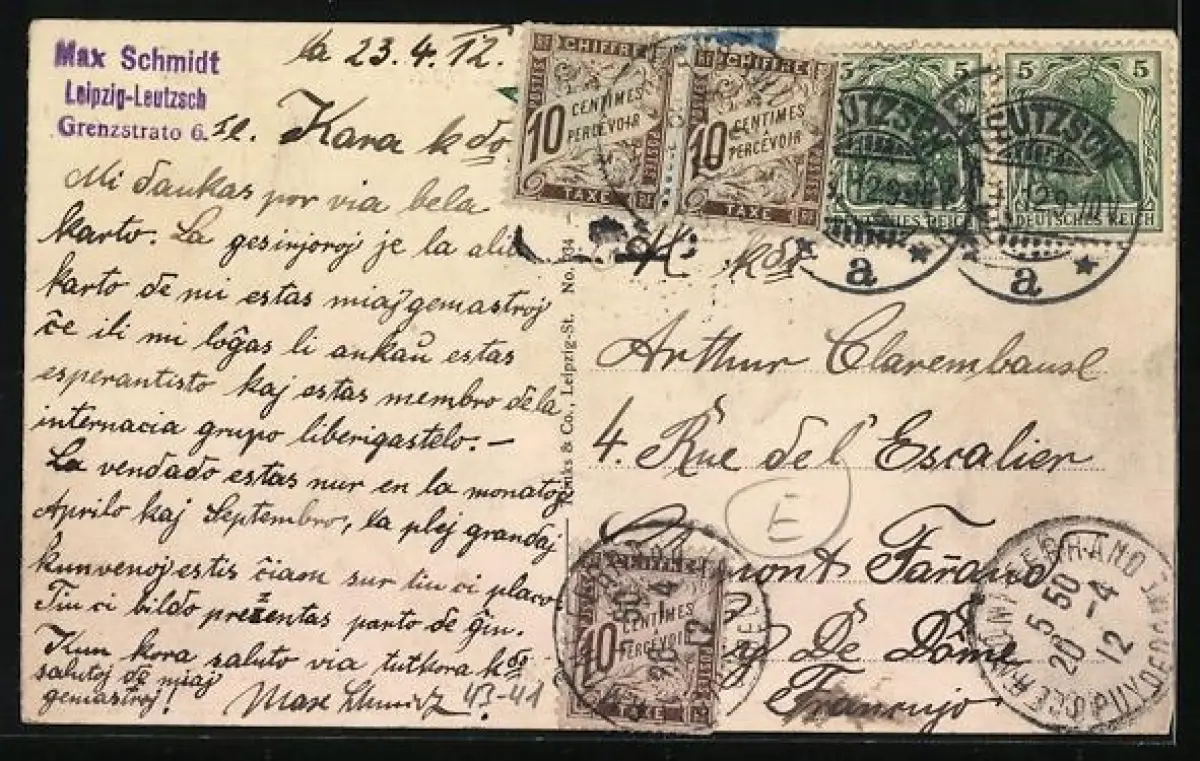 Max Schmidt
Leipzig-Leutzsch
Grenzstrato 6.
la 23.4.12.
Kara kdo
Mi dankas por via bela
karto. La gesinjoroj je la alia
karto de mi estas miaj gemastroj
ĉe ili mi loĝas li ankaŭ estas
esperantisto kaj estas membro de la
internacia grupo liberigastelo.-
La vendado estas nur en la monatoj
Aprilo kaj Septembro, la plej grandaj
kunvenoj estis ĉiam sur tiu ci placo.
Tiu ci bildo prezentas parto de ĝin.
Kun kora saluto via tutkora kdo
salutoj de miaj
gemastroj!
43-41
& Co., Leipzig-St. No.
CHIFFRE
10
CENTIMES
À
PERCEVOIR
POSTES
TAXE
CHIFFRE
10
CENTIMES
À
PERCEVOIR
POSTES
TAXE
5
5
DEUTSCHES REICH
DEUTSCHES REICH
LEUTZSCH
a
LEUTZSCH
a
K. kdo
Arthur Clarembaux
4. Rue de l'Escalier
E
mont Farand
De Dôme
Francujo
10
CENTIMES
À
PERCEVOIR
TAXE
12
FERRAND
PUY DE DOME
5 50
20 -4
12